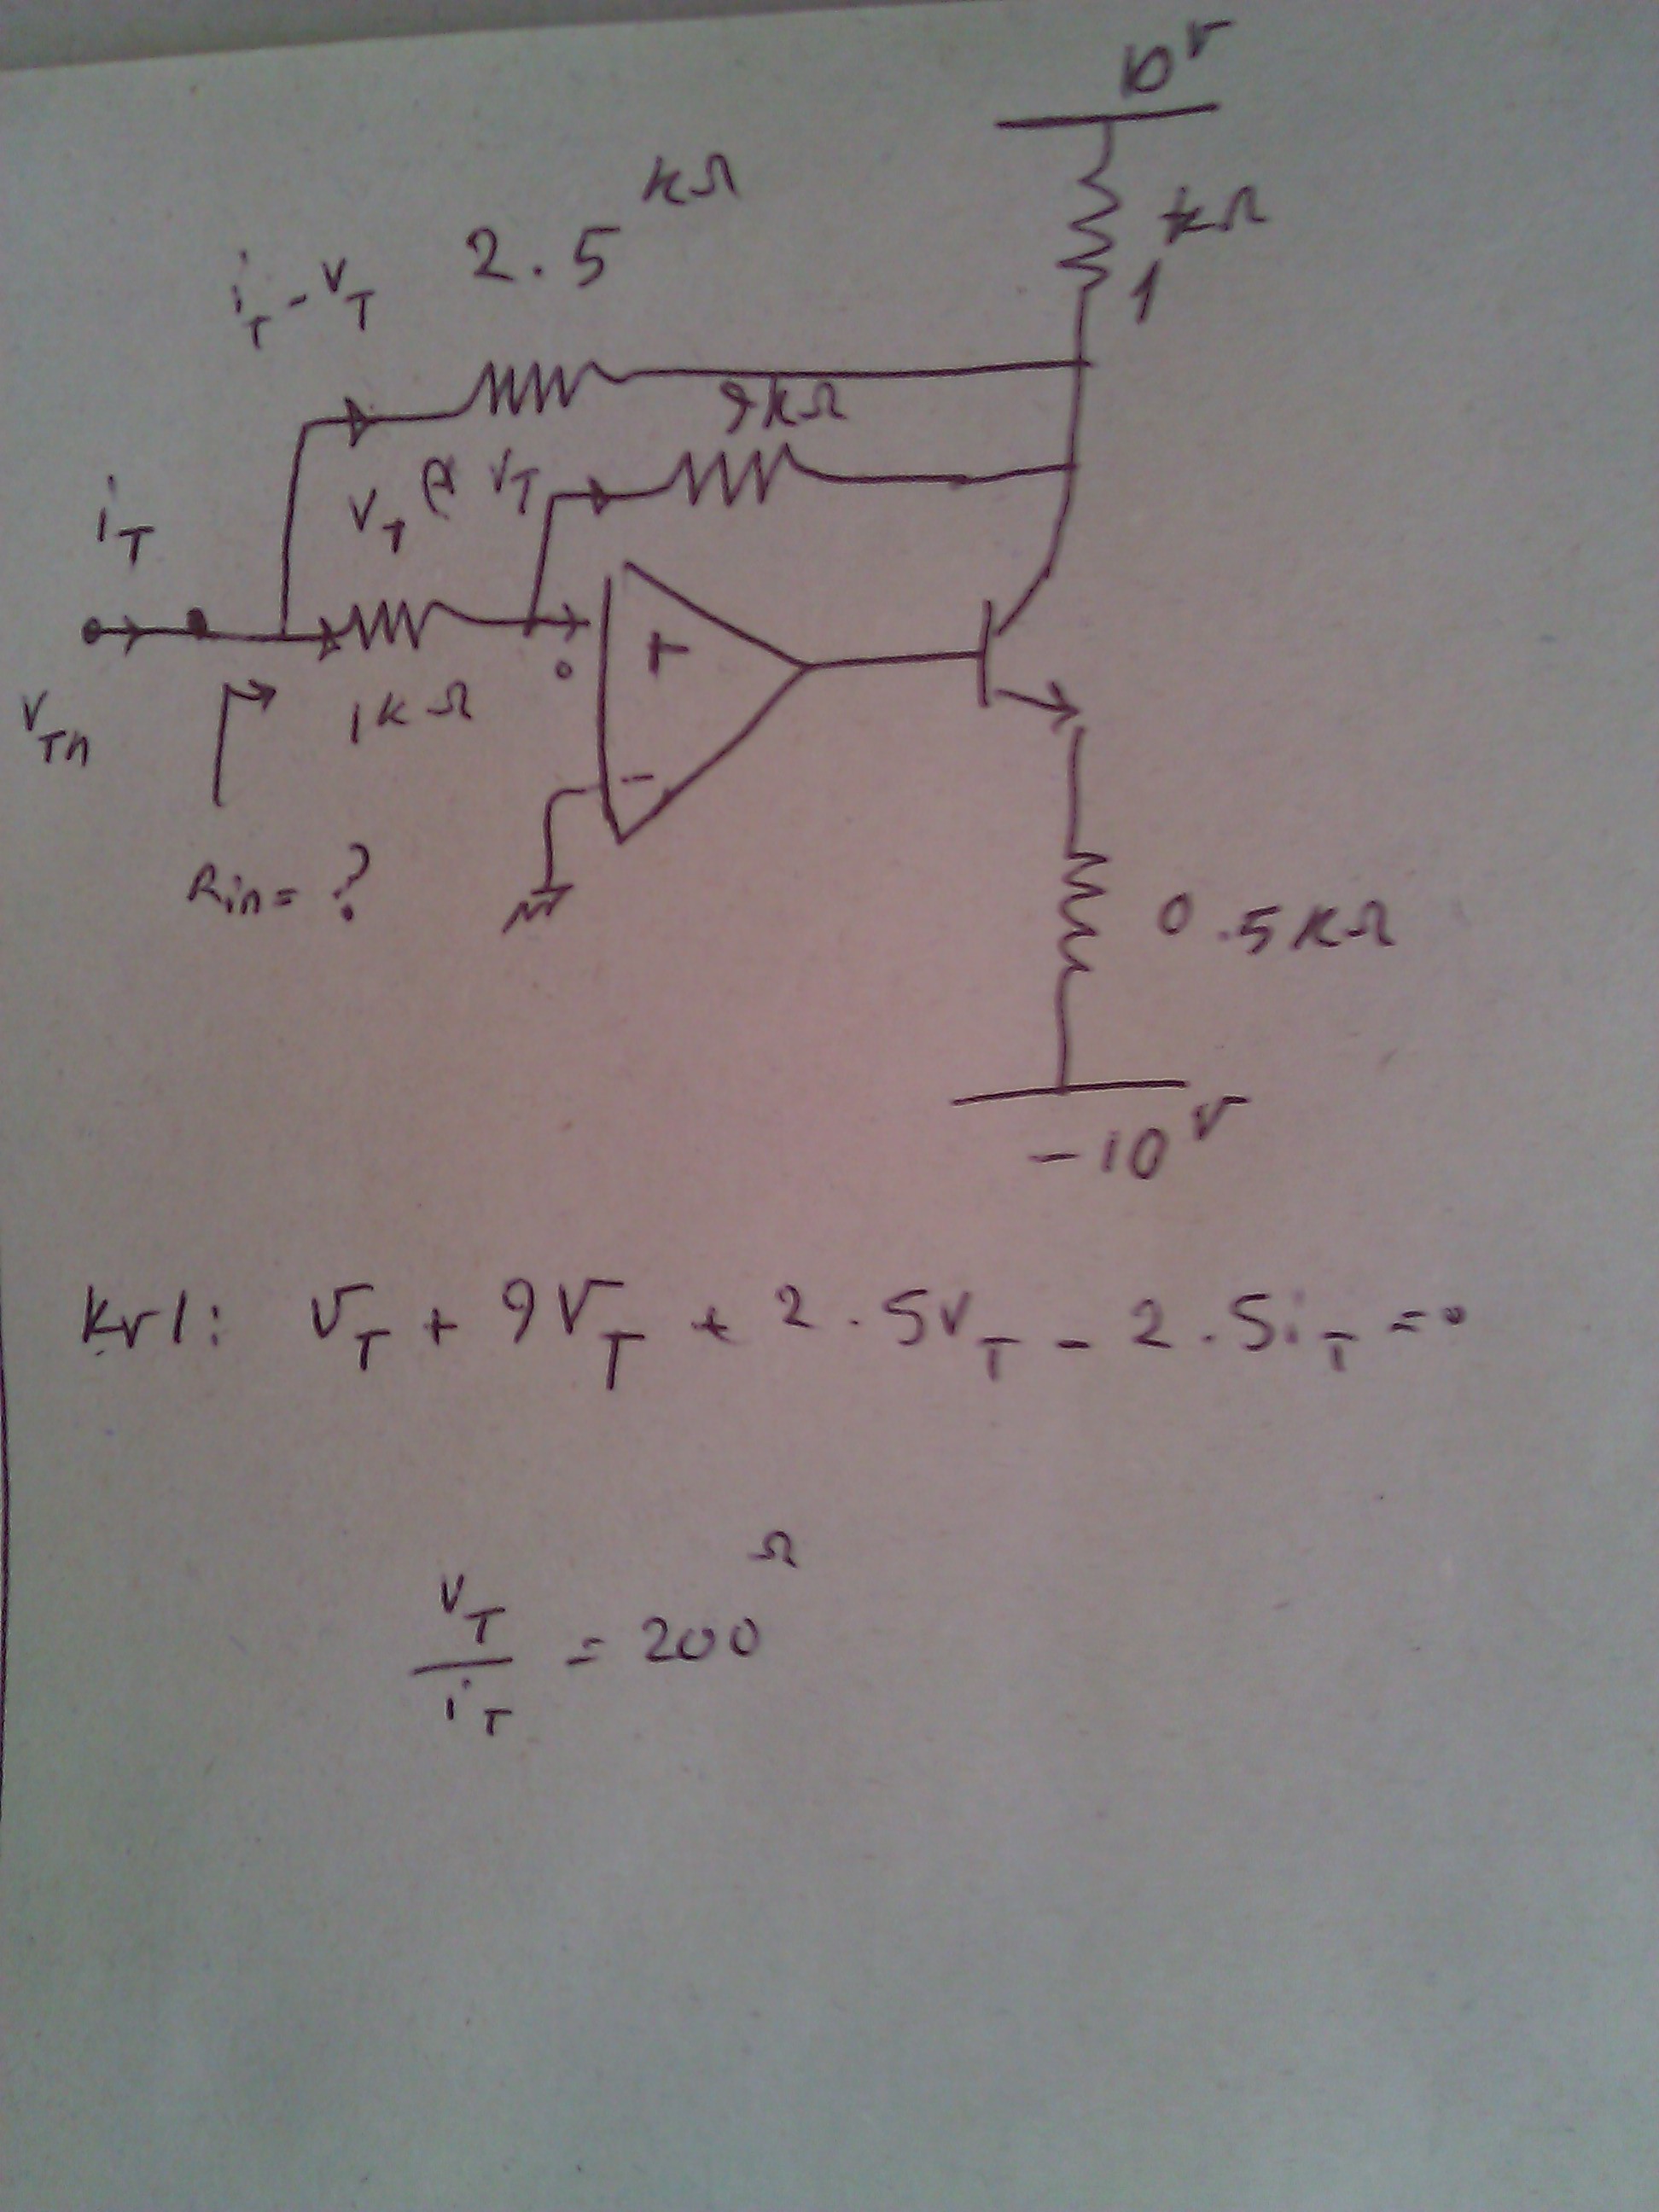 10v
kΩ
1
2.5 kΩ
iT - vT
9kΩ
vT
vT
iT
1kΩ
+
-
0
vIn
Rin= ?
0.5kΩ
-10v
kvl: vT + 9vT + 2.5vT - 2.5iT =0
vT
iT
= 200Ω